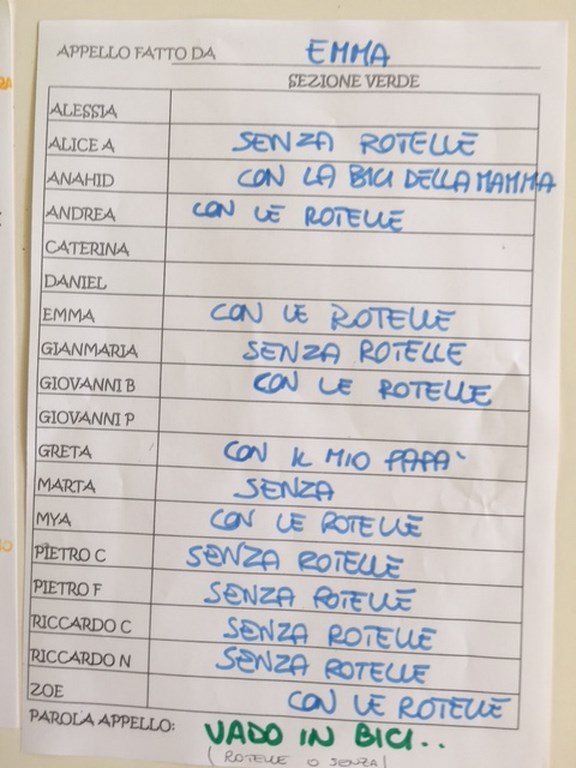 APPELLO FATTO DA EMMA
SEZIONE VERDE
ALESSIA
ALICE A SENZA ROTELLE
ANAHID CON LA BICI DELLA MAMMA
ANDREA CON LE ROTELLE
CATERINA
DANIEL
EMMA CON LE ROTELLE
GIANMARIA SENZA ROTELLE
GIOVANNI B CON LE ROTELLE
GIOVANNI P
GRETA CON IL MIO PAPA`
MARTA SENZA
MYA CON LE ROTELLE
PIETRO C SENZA ROTELLE
PIETRO F SENZA ROTELLE
RICCARDO C SENZA ROTELLE
RICCARDO N SENZA ROTELLE
ZOE CON LE ROTELLE
PAROLA APPELLO: VADO IN BICI..
(ROTELLE O SENZA)